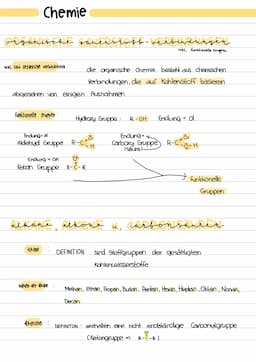 Chemie
organische sauerstoff-verbindungen
die organische Chemie besteht aus chemischen
Verbindungen, die auf Kohlenstoff basieren
abgesehen von einigen Ausnahmen
funktionelle Gruppe: Hydroxy Gruppe: R-OH Endung = ol
Endung= al Endung=
Aldehyd Gruppe R-C Carboxy Gruppe R-C
O-H
Endung = on
Keton Gruppe R-C-R
funktionelle
Gruppen
alkane, alkone u. carbonsäuren
Alkane DEFINITION: sind Stoffgruppen der gesättigten
Kohlenwasserstoffe
Reihe der Alkane Methan, Ethan, Propan, Butan, Pentan, Hexan, Heptan, Oktan, Nonan,
Decan
DEFINITION: enthalten eine nicht endständige Carbonylgruppe
(Ketongruppe = R-C-R)